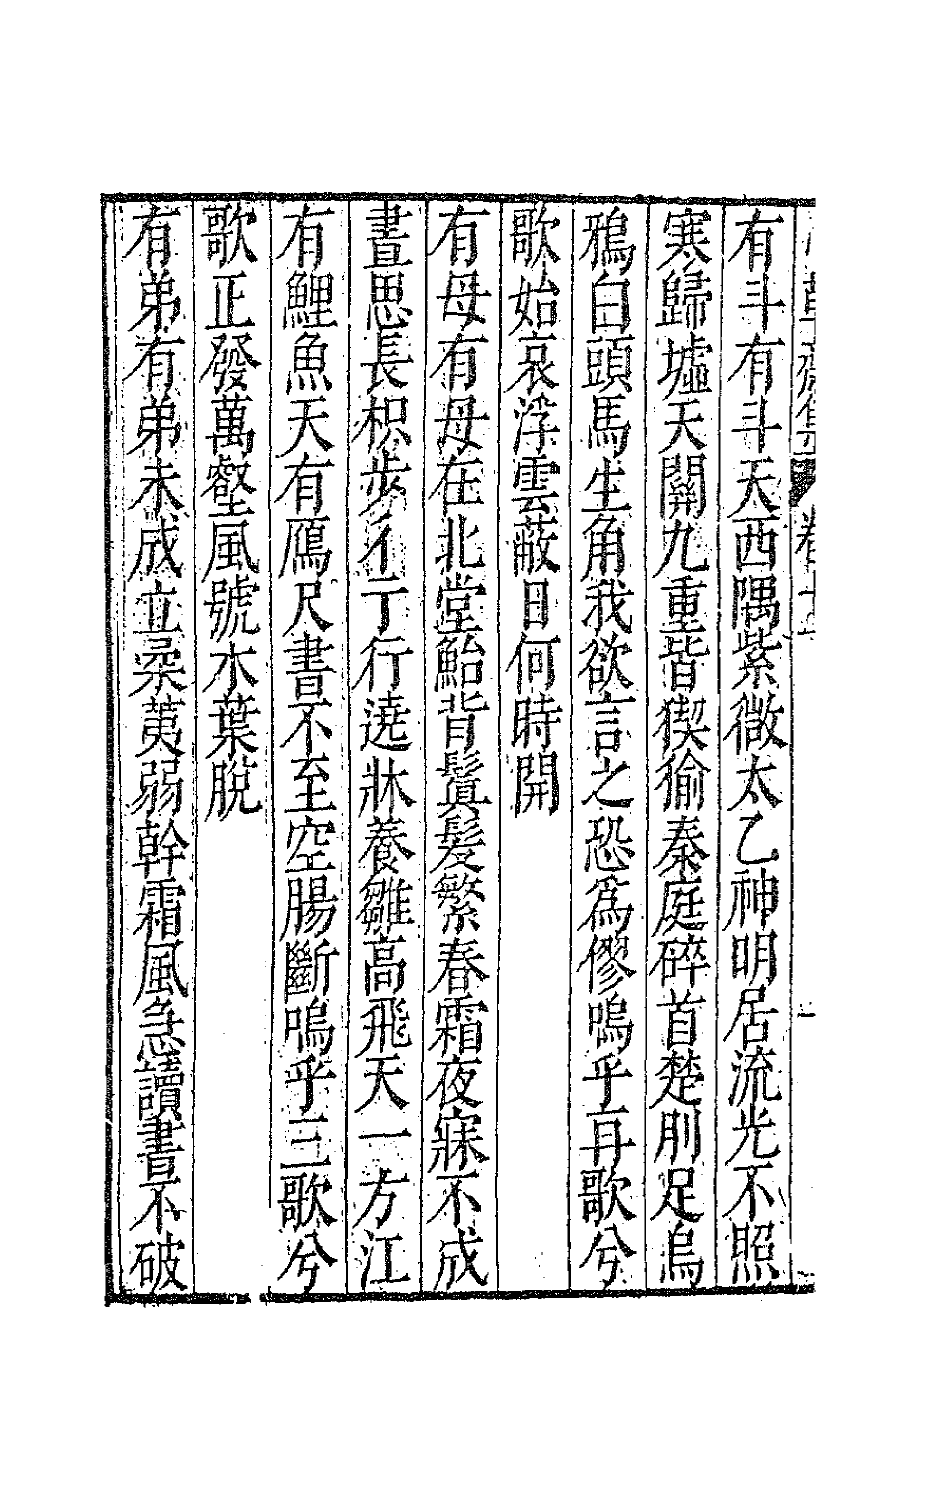 有斗有斗天西隅紫微太乙神明居流光不照
寒歸墟天關九重皆猰㺄秦庭碎首楚刖足烏
鴉白頭馬生角我欲言之恐爲僇嗚乎再歌兮
歌始哀浮雲蔽日何時開
有母有母在北堂鮐背鬒髮繁春霜夜寐不成
晝思長枳步彳亍行遶牀養雛高飛天一方江
有鯉魚天有鴈尺書不至空腸斷嗚乎三歌兮
歌正發萬壑風號木葉脫
有弟有弟未成立柔荑弱幹霜風急讀書不破